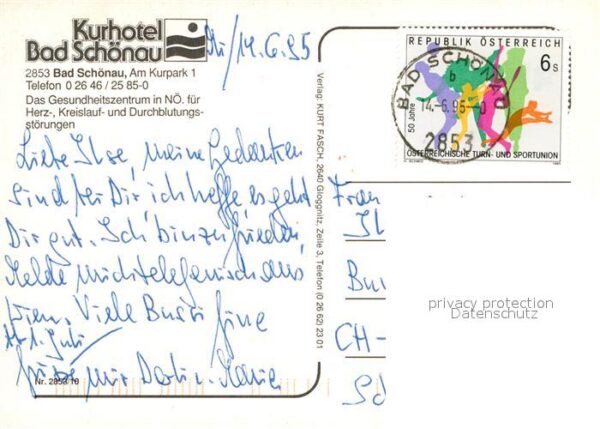 Kurhotel
Bad Schönau
2853 Bad Schönau, Am Kurpark 1
Telefon 0 26 46 / 25 85-0
Das Gesundheitszentrum in NÖ. für
Herz-, Kreislauf- und Durchblutungs-
störungen
Mi/14.6.95
Liebe Ilse, meine Gedanken
sind bei Dir, ich hoffe, es geht
Dir gut. Ich bin zufrieden,
Melde mich telefonisch aus
Wien. Viele Bussi
1. Juli
Nr. 2853 10
Verlag: KURT FASCH, 2640 Gloggnitz, Zeile 3, Telefon (0 26 62) 23 01
REPUBLIK ÖSTERREICH
6 s
50 Jahre
ÖSTERREICHISCHE TURN- UND SPORTUNION
BAD SCHÖNAU
b
14.-6.95-
2853
Frau
Il
CH-
privacy protection
Datenschutz